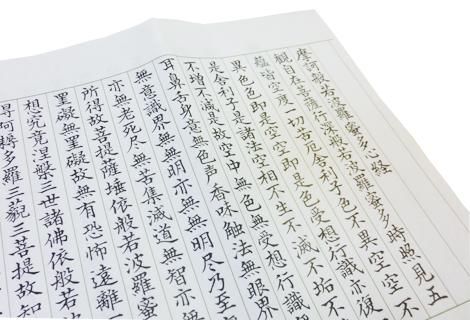 摩訶般若波羅蜜多心経
観自在菩薩行深般若波羅蜜多時照見五
蘊皆空度一切苦厄舎利子色不異空空不
異色色即是空空即是色受想行識亦復
是舎利子是諸法空相不生不滅不垢不
不増不減是故空中無色無受想行識
耳鼻舌身意無色声香味触法無眼界
無意識界無無明亦無無明尽乃至
亦無老死尽無苦集滅道無智亦
所得故菩提薩埵依般若波羅蜜
罣礙無罣礙故無有恐怖遠離一
想究竟涅槃三世諸佛依般若波
得阿耨多羅三藐三菩提故知